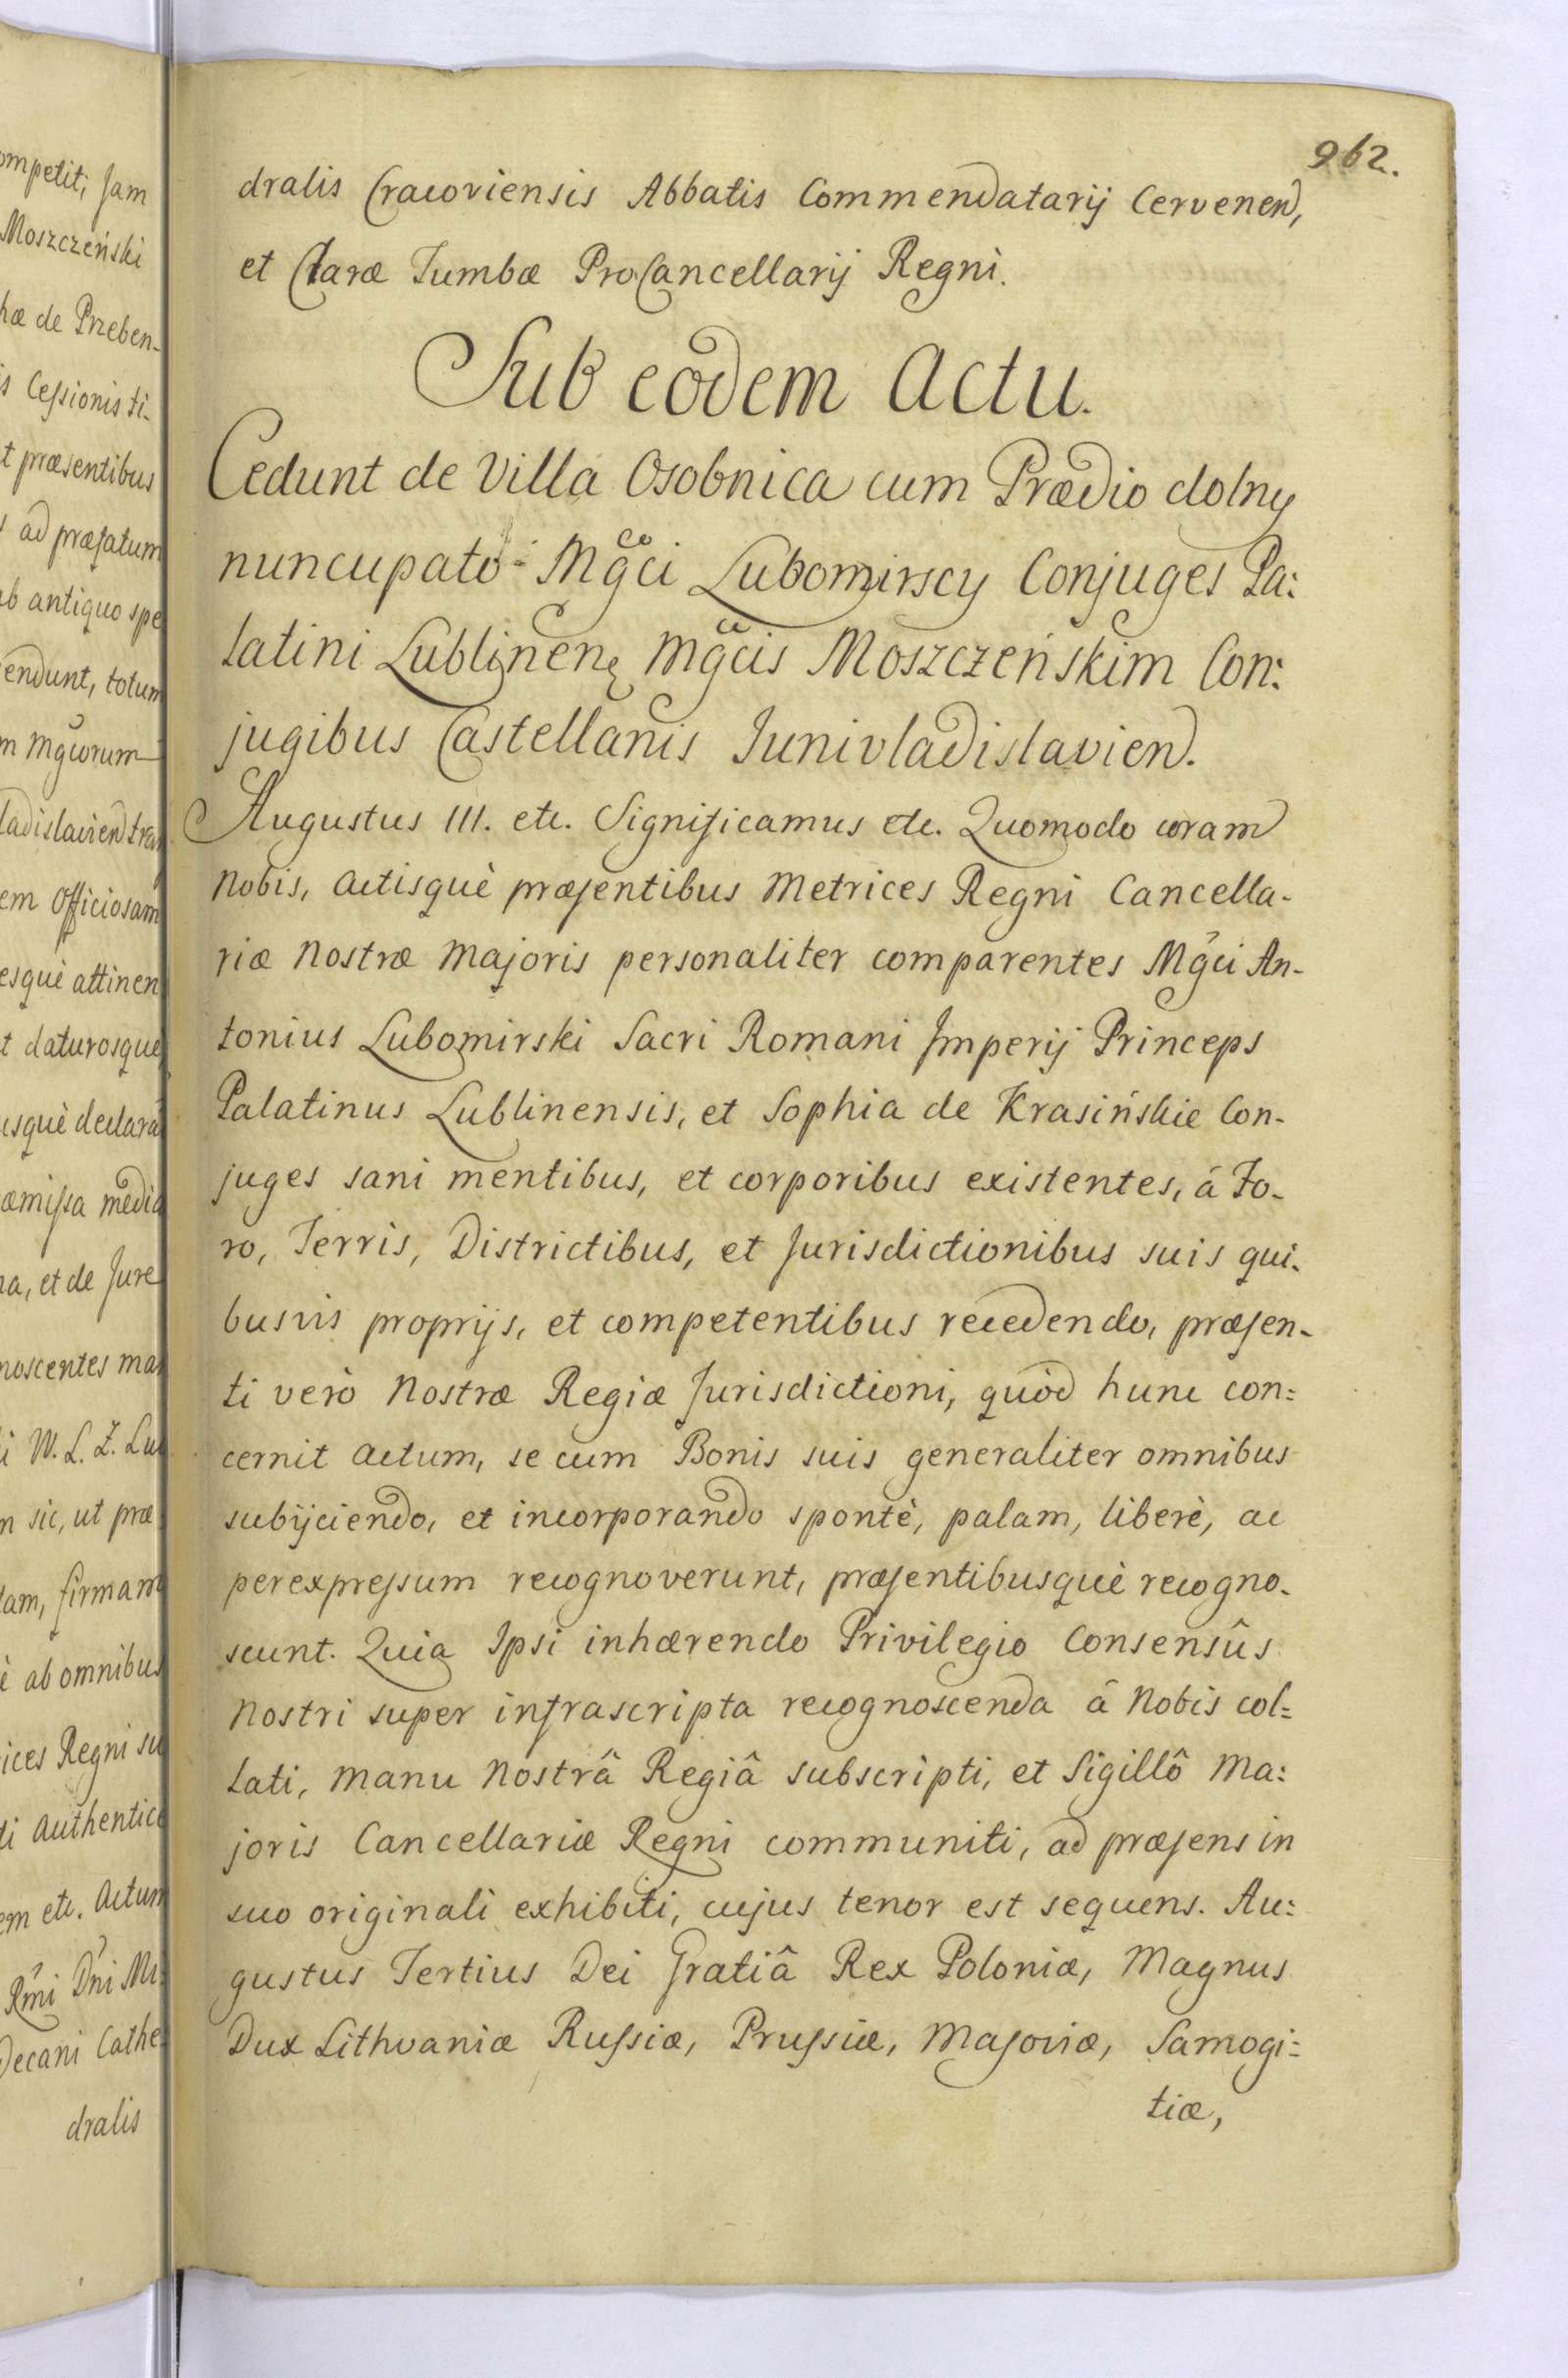 ompetit; Jam
Moszczeński
hæ de Przeben-
is Cessionis ti-
t præsentibus
ad præfatum
ab antiquo spe
endunt, totum
m Mgcorum
ladislavien tran
em Officiosam
esquè attinen
t daturosque
usquè declara
æmissa media
na, et de Jure
noscentes ma
i W. L. Z. Lu
n sic, ut præ
lam, firmam
è ab omnibus
ices Regni su
ti Authentice
em etc. Actum
Rmi Dni Mi:
Decani Cathe
dralis
962.
dralis Cracoviensis Abbatis Commendatarij Cervenen,
et Claræ Tumbæ ProCancellarij Regni.
Sub eodem Actu.
Cedunt de Villa Osobnica cum Prædio dolny
nuncupato Mgci Lubomirscy Conjuges Pa:
latini Lublinen Mgcis Moszczeńskim Con:
jugibus Castellanis Junivladislavien.
Augustus III. etc. Significamus etc. Quomodo coram
Nobis, Actisquè præsentibus Metrices Regni Cancella-
riæ Nostræ Majoris personaliter comparentes Mgci An-
tonius Lubomirski Sacri Romani Imperij Princeps
Palatinus Lublinensis, et Sophia de Krasińskie Con-
juges sani mentibus, et corporibus existentes, á Fo-
ro, Terris, Districtibus, et Jurisdictionibus suis qui-
busvis proprijs, et competentibus recedendo, præsen-
ti verò Nostræ Regiæ Jurisdictioni, quòd hunc con:
cernit Actum, se cum Bonis suis generaliter omnibus
subijciendo, et incorporando spontè, palam, liberè, ac
perexpressum recognoverunt, præsentibusquè recogno-
scunt. Quia Ipsi inhærendo Privilegio Consensûs
Nostri super infrascripta recognoscenda á Nobis col=
lati, Manu Nostrâ Regiâ subscripti, et Sigillô Ma:
joris Cancellariæ Regni communiti, ad præsens in
suo originali exhibiti, cujus tenor est sequens. Au:
gustus Tertius Dei Gratiâ Rex Poloniæ, Magnus
Dux Lithvaniæ Russiæ, Prussiæ, Masoviæ, Samogi=
tiæ,